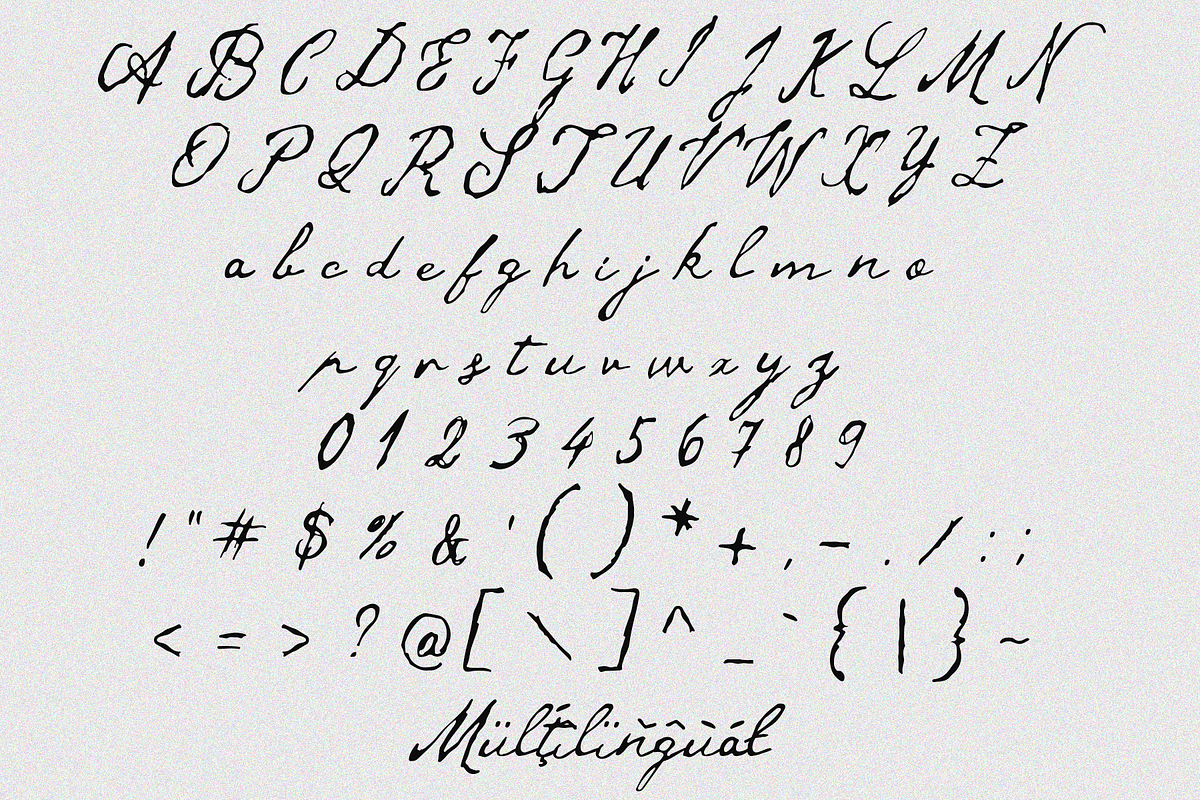 A B C D E F G H I J K L M N
O P Q R S T U V W X Y Z
a b c d e f g h i j k l m n o
p q r s t u v w x y z
0 1 2 3 4 5 6 7 8 9
! " # $ % & ' ( ) * + , - . / : ;
< = > ? @ [ \ ] ^ _ ` { | } ~
Mülţílïňĝùáł